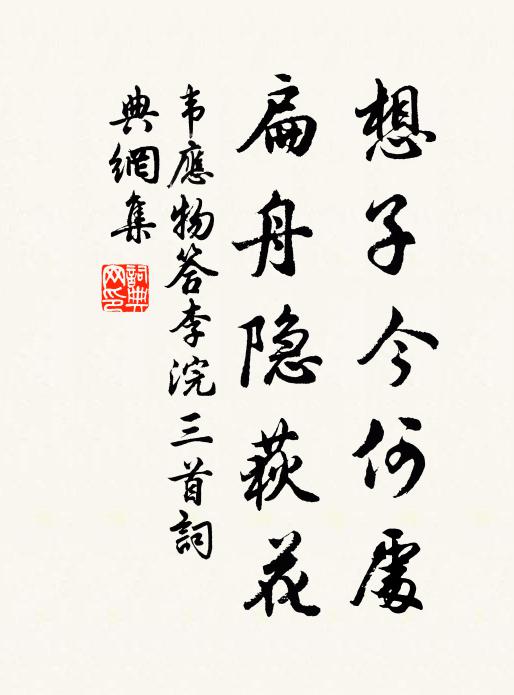 想子今何處
扁舟隐荻花
韦應物答李浣三首詞
典網集
詞典
网印